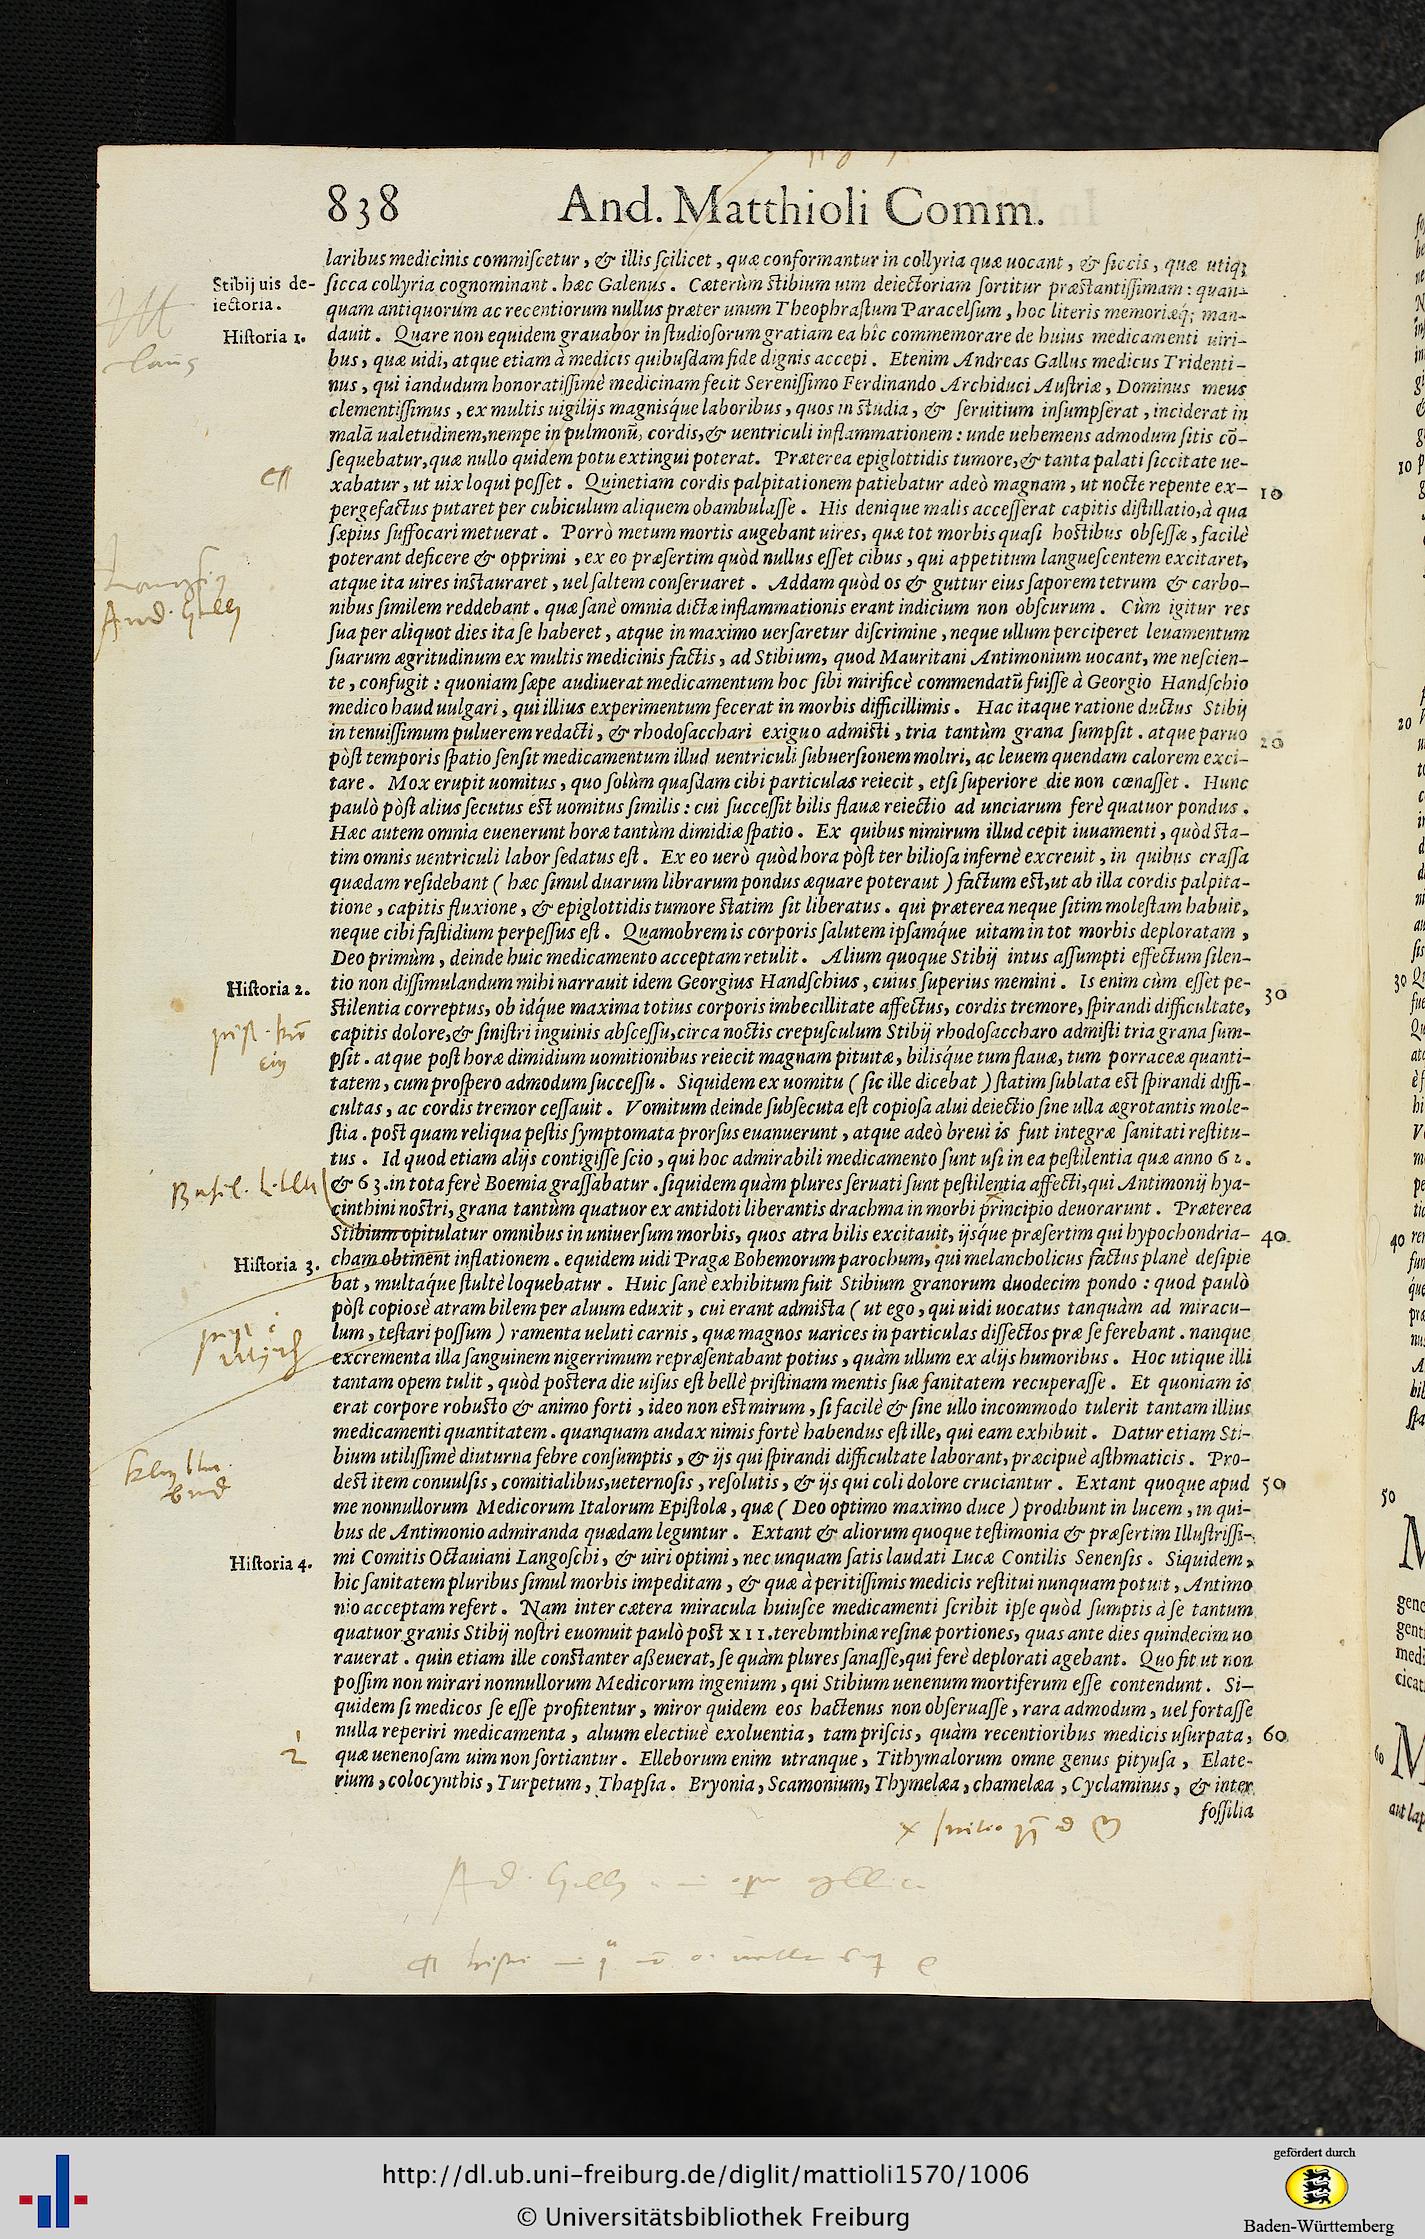 838 And. Matthioli Comm.
laribus medicinis commiſcetur, & illis ſcilicet, quæ conformantur in collyria quæ uocant, & ſiccis, quæ utiq;
Stibij uis de-
iectoria.
ſicca collyria cognominant. hæc Galenus. Cæterùm ſtibium uim deiectoriam ſortitur præſtantiſſimam: quan-
quam antiquorum ac recentiorum nullus præter unum Theophraſtum Paracelſum, hoc literis memoriæq́; man-
Hiſtoria 1.
dauit. Quare non equidem grauabor in ſtudioſorum gratiam ea hîc commemorare de huius medicamenti uiri-
bus, quæ uidi, atque etiam à medicis quibuſdam fide dignis accepi. Etenim Andreas Gallus medicus Tridenti-
nus, qui iandudum honoratiſſimè medicinam fecit Sereniſſimo Ferdinando Archiduci Auſtriæ, Dominus meus
clementiſſimus, ex multis uigilijs magnisq́ue laboribus, quos in ſtudia, & ſeruitium inſumpſerat, inciderat in
malā ualetudinem, nempe in pulmonū, cordis, & uentriculi inflammationem: unde uehemens admodum ſitis cō-
ſequebatur, quæ nullo quidem potu extingui poterat. Præterea epiglottidis tumore, & tanta palati ſiccitate ue-
xabatur, ut uix loqui poſſet. Quinetiam cordis palpitationem patiebatur adeò magnam, ut nocte repente ex- 10
pergefactus putaret per cubiculum aliquem obambulaſſe. His denique malis acceſſerat capitis diſtillatio, à qua
ſæpius ſuffocari metuerat. Porrò metum mortis augebant uires, quæ tot morbis quaſi hoſtibus obſeſſæ, facilè
poterant deficere & opprimi, ex eo præſertim quòd nullus eſſet cibus, qui appetitum langueſcentem excitaret,
atque ita uires inſtauraret, uel ſaltem conſeruaret. Addam quòd os & guttur eius ſaporem tetrum & carbo-
nibus ſimilem reddebant. quæ ſanè omnia dictæ inflammationis erant indicium non obſcurum. Cùm igitur res
And. Gall
ſua per aliquot dies ita ſe haberet, atque in maximo uerſaretur diſcrimine, neque ullum perciperet leuamentum
ſuarum ægritudinum ex multis medicinis factis, ad Stibium, quod Mauritani Antimonium uocant, me neſcien-
te, confugit: quoniam ſæpe audiuerat medicamentum hoc ſibi mirificè commendatū fuiſſe à Georgio Handſchio
medico haud uulgari, qui illius experimentum fecerat in morbis difficillimis. Hac itaque ratione ductus Stibij
in tenuiſſimum puluerem redacti, & rhodoſacchari exiguo admiſti, tria tantùm grana ſumpſit. atque paruo 20
pòſt temporis ſpatio ſenſit medicamentum illud uentriculi ſubuerſionem moliri, ac leuem quendam calorem exci-
tare. Mox erupit uomitus, quo ſolùm quaſdam cibi particulas reiecit, etſi ſuperiore die non cœnaſſet. Hunc
paulò pòſt alius ſecutus eſt uomitus ſimilis: cui ſucceſſit bilis flauæ reiectio ad unciarum ferè quatuor pondus.
Hæc autem omnia euenerunt horæ tantùm dimidiæ ſpatio. Ex quibus nimirum illud cepit iuuamenti, quòd ſta-
tim omnis uentriculi labor ſedatus eſt. Ex eo uerò quòd hora pòſt ter bilioſa infernè excreuit, in quibus craſſa
quædam reſidebant (hæc ſimul duarum librarum pondus æquare poteraut) factum eſt, ut ab illa cordis palpita-
tione, capitis fluxione, & epiglottidis tumore ſtatim ſit liberatus. qui præterea neque ſitim moleſtam habuit,
neque cibi faſtidium perpeſſus eſt. Quamobrem is corporis ſalutem ipſamq́ue uitam in tot morbis deploratam,
Deo primùm, deinde huic medicamento acceptam retulit. Alium quoque Stibij intus aſſumpti effectum ſilen-
Hiſtoria 2.
tio non diſſimulandum mihi narrauit idem Georgius Handſchius, cuius ſuperius memini. Is enim cùm eſſet pe- 30
ſtilentia correptus, ob idq́ue maxima totius corporis imbecillitate affectus, cordis tremore, ſpirandi difficultate,
capitis dolore, & ſiniſtri inguinis abſceſſu, circa noctis crepuſculum Stibij rhodoſaccharo admiſti tria grana ſum-
pſit. atque poſt horæ dimidium uomitionibus reiecit magnam pituitæ, bilisq́ue tum flauæ, tum porraceæ quanti-
tatem, cum proſpero admodum ſucceſſu. Siquidem ex uomitu (ſic ille dicebat) ſtatim ſublata eſt ſpirandi diffi-
cultas, ac cordis tremor ceſſauit. Vomitum deinde ſubſecuta eſt copioſa alui deiectio ſine ulla ægrotantis mole-
ſtia. poſt quam reliqua peſtis ſymptomata prorſus euanuerunt, atque adeò breui is fuit integræ ſanitati reſtitu-
tus. Id quod etiam alijs contigiſſe ſcio, qui hoc admirabili medicamento ſunt uſi in ea peſtilentia quæ anno 62.
& 63. in tota ferè Boemia graſſabatur. ſiquidem quàm plures ſeruati ſunt peſtilentia affecti, qui Antimonij hya-
cinthini noſtri, grana tantùm quatuor ex antidoti liberantis drachma in morbi principio deuorarunt. Præterea
Stibium opitulatur omnibus in uniuerſum morbis, quos atra bilis excitauit, ijsq́ue præſertim qui hypochondria- 40
Hiſtoria 3.
cham obtinent inflationem. equidem uidi Pragæ Bohemorum parochum, qui melancholicus factus planè deſipie
bat, multaq́ue ſtultè loquebatur. Huic ſanè exhibitum fuit Stibium granorum duodecim pondo: quod paulò
pòſt copiosè atram bilem per aluum eduxit, cui erant admiſta (ut ego, qui uidi uocatus tanquàm ad miracu-
lum, teſtari poſſum) ramenta ueluti carnis, quæ magnos uarices in particulas diſſectos præ ſe ferebant. nanque
excrementa illa ſanguinem nigerrimum repræſentabant potius, quàm ullum ex alijs humoribus. Hoc utique illi
tantam opem tulit, quòd poſtera die uiſus eſt bellè priſtinam mentis ſuæ ſanitatem recuperaſſe. Et quoniam is
erat corpore robuſto & animo forti, ideo non eſt mirum, ſi facilè & ſine ullo incommodo tulerit tantam illius
medicamenti quantitatem. quanquam audax nimis fortè habendus eſt ille, qui eam exhibuit. Datur etiam Sti-
bium utiliſſimè diuturna febre conſumptis, & ijs qui ſpirandi difficultate laborant, præcipuè aſthmaticis. Pro-
deſt item conuulſis, comitialibus, ueternoſis, reſolutis, & ijs qui coli dolore cruciantur. Extant quoque apud 50
me nonnullorum Medicorum Italorum Epiſtolæ, quæ (Deo optimo maximo duce) prodibunt in lucem, in qui-
bus de Antimonio admiranda quædam leguntur. Extant & aliorum quoque teſtimonia & præſertim Illuſtriſſi-
Hiſtoria 4.
mi Comitis Octauiani Langoſchi, & uiri optimi, nec unquam ſatis laudati Lucæ Contilis Senenſis. Siquidem,
hic ſanitatem pluribus ſimul morbis impeditam, & quæ à peritiſſimis medicis reſtitui nunquam potuit, Antimo
nio acceptam refert. Nam inter cætera miracula huiuſce medicamenti ſcribit ipſe quòd ſumptis à ſe tantum
quatuor granis Stibij noſtri euomuit paulò poſt XII. terebinthinæ reſinæ portiones, quas ante dies quindecim uo
rauerat. quin etiam ille conſtanter aßeuerat, ſe quàm plures ſanaſſe, qui ferè deplorati agebant. Quo fit ut non
poſſim non mirari nonnullorum Medicorum ingenium, qui Stibium uenenum mortiferum eſſe contendunt. Si-
quidem ſi medicos ſe eſſe profitentur, miror quidem eos hactenus non obſeruaſſe, rara admodum, uel fortaſſe
nulla reperiri medicamenta, aluum electiuè exoluentia, tam priſcis, quàm recentioribus medicis uſurpata, 60
quæ uenenoſam uim non ſortiantur. Elleborum enim utranque, Tithymalorum omne genus pityuſa, Elate-
rium, colocynthis, Turpetum, Thapſia. Bryonia, Scamonium, Thymelæa, chamelæa, Cyclaminus, & inter
foſſilia
http://dl.ub.uni-freiburg.de/diglit/mattioli1570/1006
© Universitätsbibliothek Freiburg
gefördert durch
Baden-Württemberg